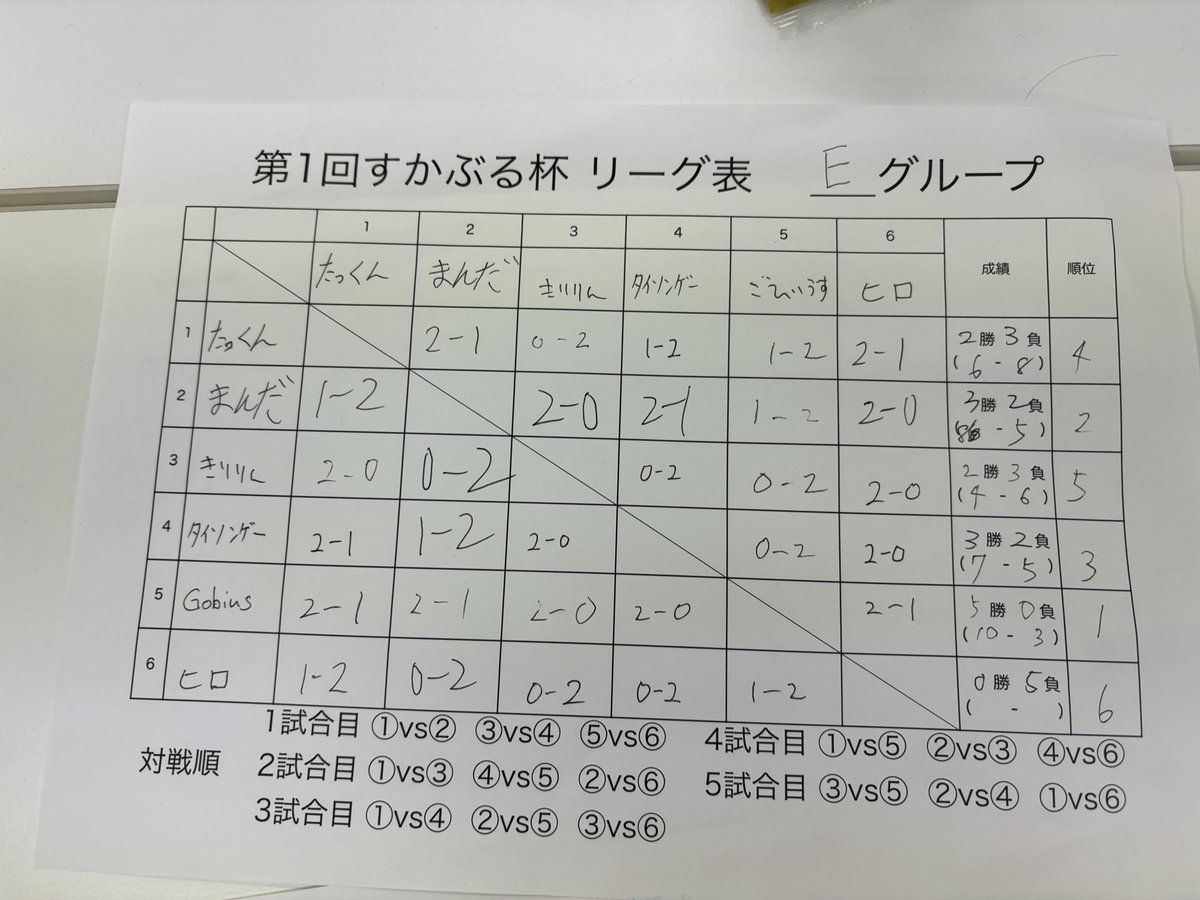 第1回すかぶる杯 リーグ表 E グループ
1 2 3 4 5 6 成績 順位
たっくん まんだ きりりん タイソンゲー ごびうす ヒロ
1 たっくん 2-1 0-2 1-2 1-2 2-1 2勝3負 (6-8) 4
2 まんだ 1-2 2-0 2-1 1-2 2-0 3勝2負 (8-5) 2
3 きりりん 2-0 0-2 0-2 0-2 2-0 2勝3負 (4-6) 5
4 タイソンゲー 2-1 1-2 2-0 0-2 2-0 3勝2負 (7-5) 3
5 Gobius 2-1 2-1 2-0 2-0 2-1 5勝0負 (10-3) 1
6 ヒロ 1-2 0-2 0-2 0-2 1-2 0勝5負 ( - ) 6
対戦順
1試合目 ①vs② ③vs④ ⑤vs⑥
2試合目 ①vs③ ④vs⑤ ②vs⑥
3試合目 ①vs④ ②vs⑤ ③vs⑥
4試合目 ①vs⑤ ②vs③ ④vs⑥
5試合目 ③vs⑤ ②vs④ ①vs⑥